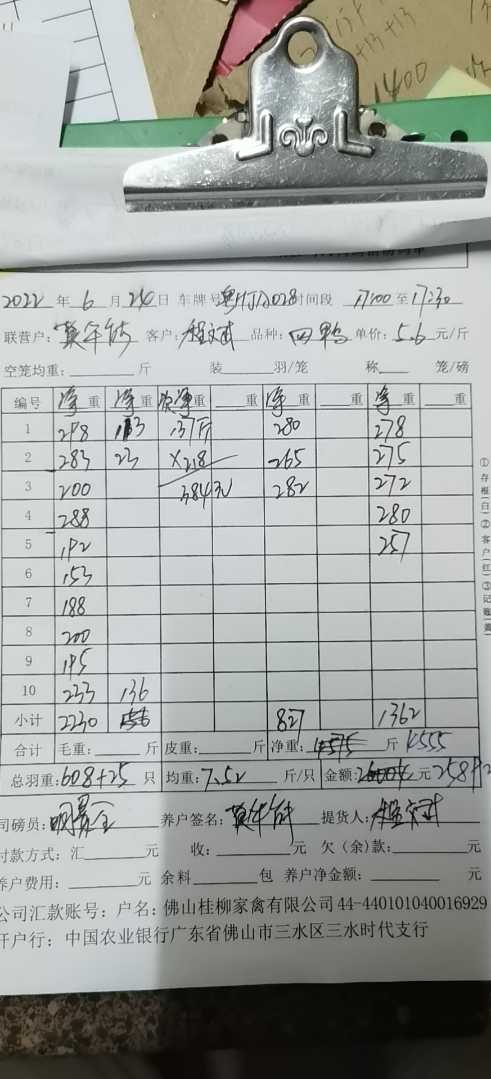 1400
2022 年 6 月 24 日 车牌号 时间段 17:00 至 17:30
联营户: 客户: 程文斌 品种: 四鸭 单价: 5.6 元/斤
空笼均重: 斤 装 羽/笼 称 笼/磅
编号 净重 净重 重 重 净重 重 净重 重
1 298 113 137斤 280 278
2 283 23 ×2.8 265 275
3 200 384元 282 272
4 288 280
5 192 257
6 153
7 188
8 200
9 195
10 233 136
小计 2230 827 1362
合计 毛重: 斤 皮重: 斤 净重: 斤 4555
总羽重: 608+25 只 均重: 7.52 斤/只 金额: 元
司磅员: 养户签名: 提货人: 程文斌
付款方式: 汇 元 收: 元 欠(余)款: 元
养户费用: 元 余料 包 养户净金额: 元
公司汇款账号: 户名: 佛山桂柳家禽有限公司 44-440101040016929
开户行: 中国农业银行广东省佛山市三水区三水时代支行
①存根(白)②客户(红)③记账(黄)